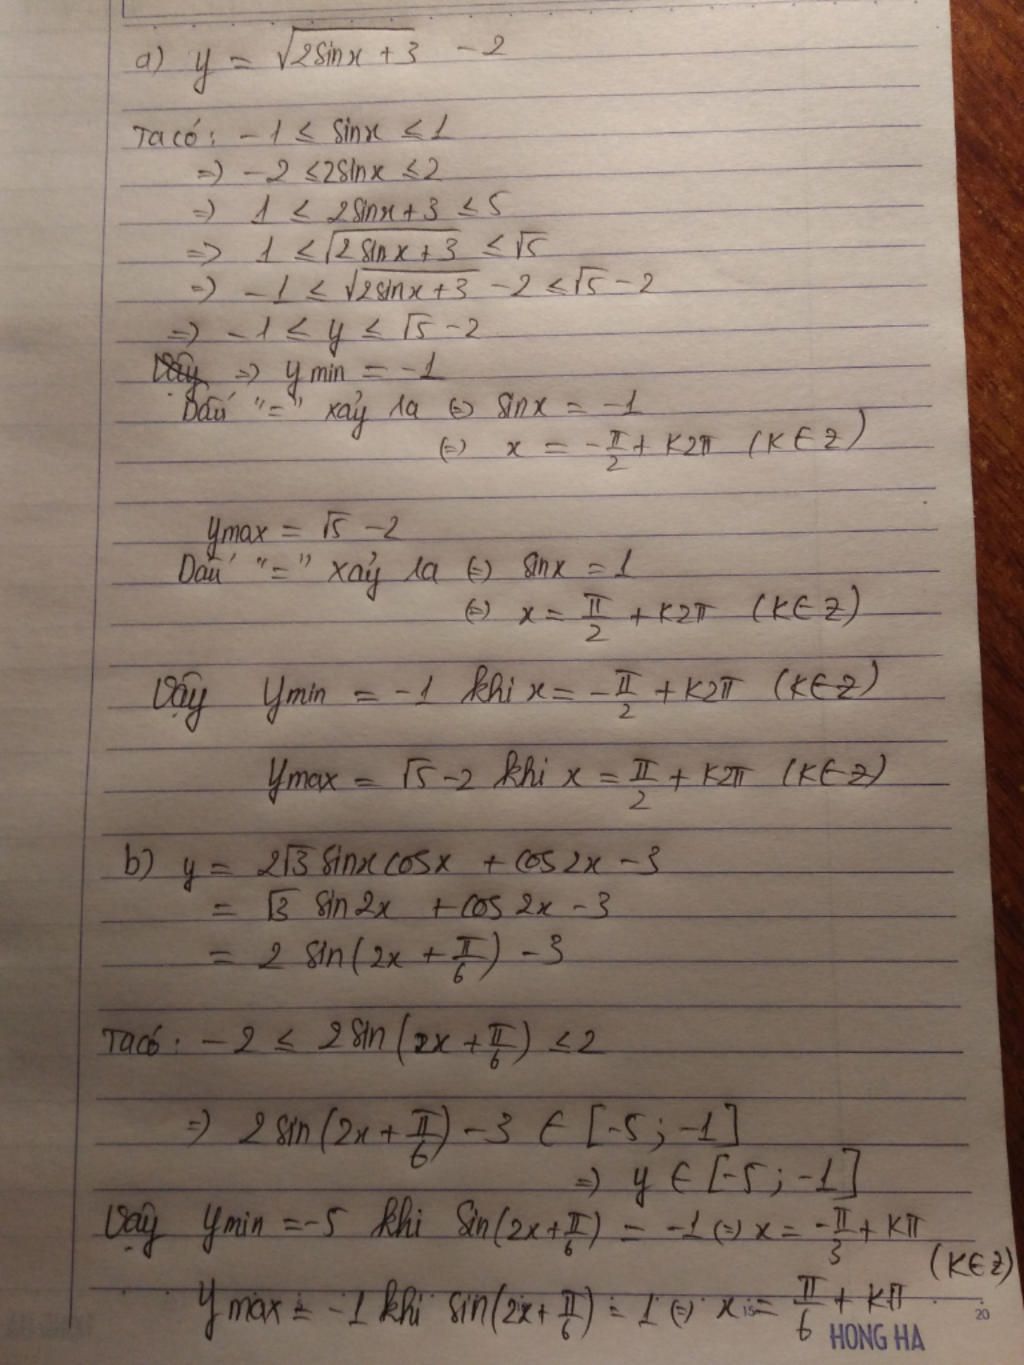 a) y = √(2sinx + 3) - 2
Ta có: -1 ≤ sinx ≤ 1
=> -2 ≤ 2sinx ≤ 2
=> 1 ≤ 2sinx + 3 ≤ 5
=> 1 ≤ √(2sinx + 3) ≤ √5
=> -1 ≤ √(2sinx + 3) - 2 ≤ √5 - 2
=> -1 ≤ y ≤ √5 - 2
Vậy => ymin = -1
Dấu "=" xảy ra (=) sinx = -1
(=) x = -π/2 + k2π (k ∈ Z)
ymax = √5 - 2
Dấu "=" xảy ra (=) sinx = 1
(=) x = π/2 + k2π (k ∈ Z)
Vậy ymin = -1 khi x = -π/2 + k2π (k ∈ Z)
ymax = √5 - 2 khi x = π/2 + k2π (k ∈ Z)
b) y = 2√3 sinx cosx + cos2x - 3
= √3 sin2x + cos2x - 3
= 2 sin(2x + π/6) - 3
Ta có: -2 ≤ 2sin(2x + π/6) ≤ 2
=> 2sin(2x + π/6) - 3 ∈ [-5; -1]
=> y ∈ [-5; -1]
Vậy ymin = -5 khi sin(2x + π/6) = -1 (=) x = -π/3 + kπ
(k ∈ Z)
ymax = -1 khi sin(2x + π/6) = 1 (=) x = π/6 + kπ
15 20
HONG HA